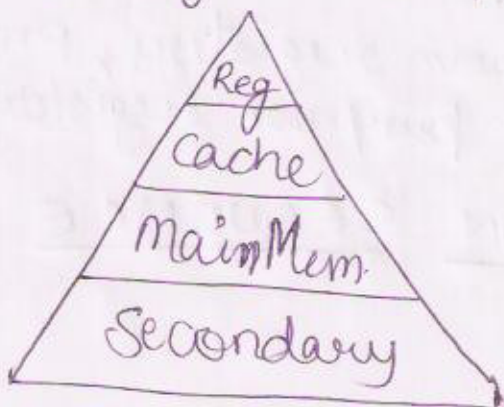 Reg
Cache
Main Mem.
Secondary